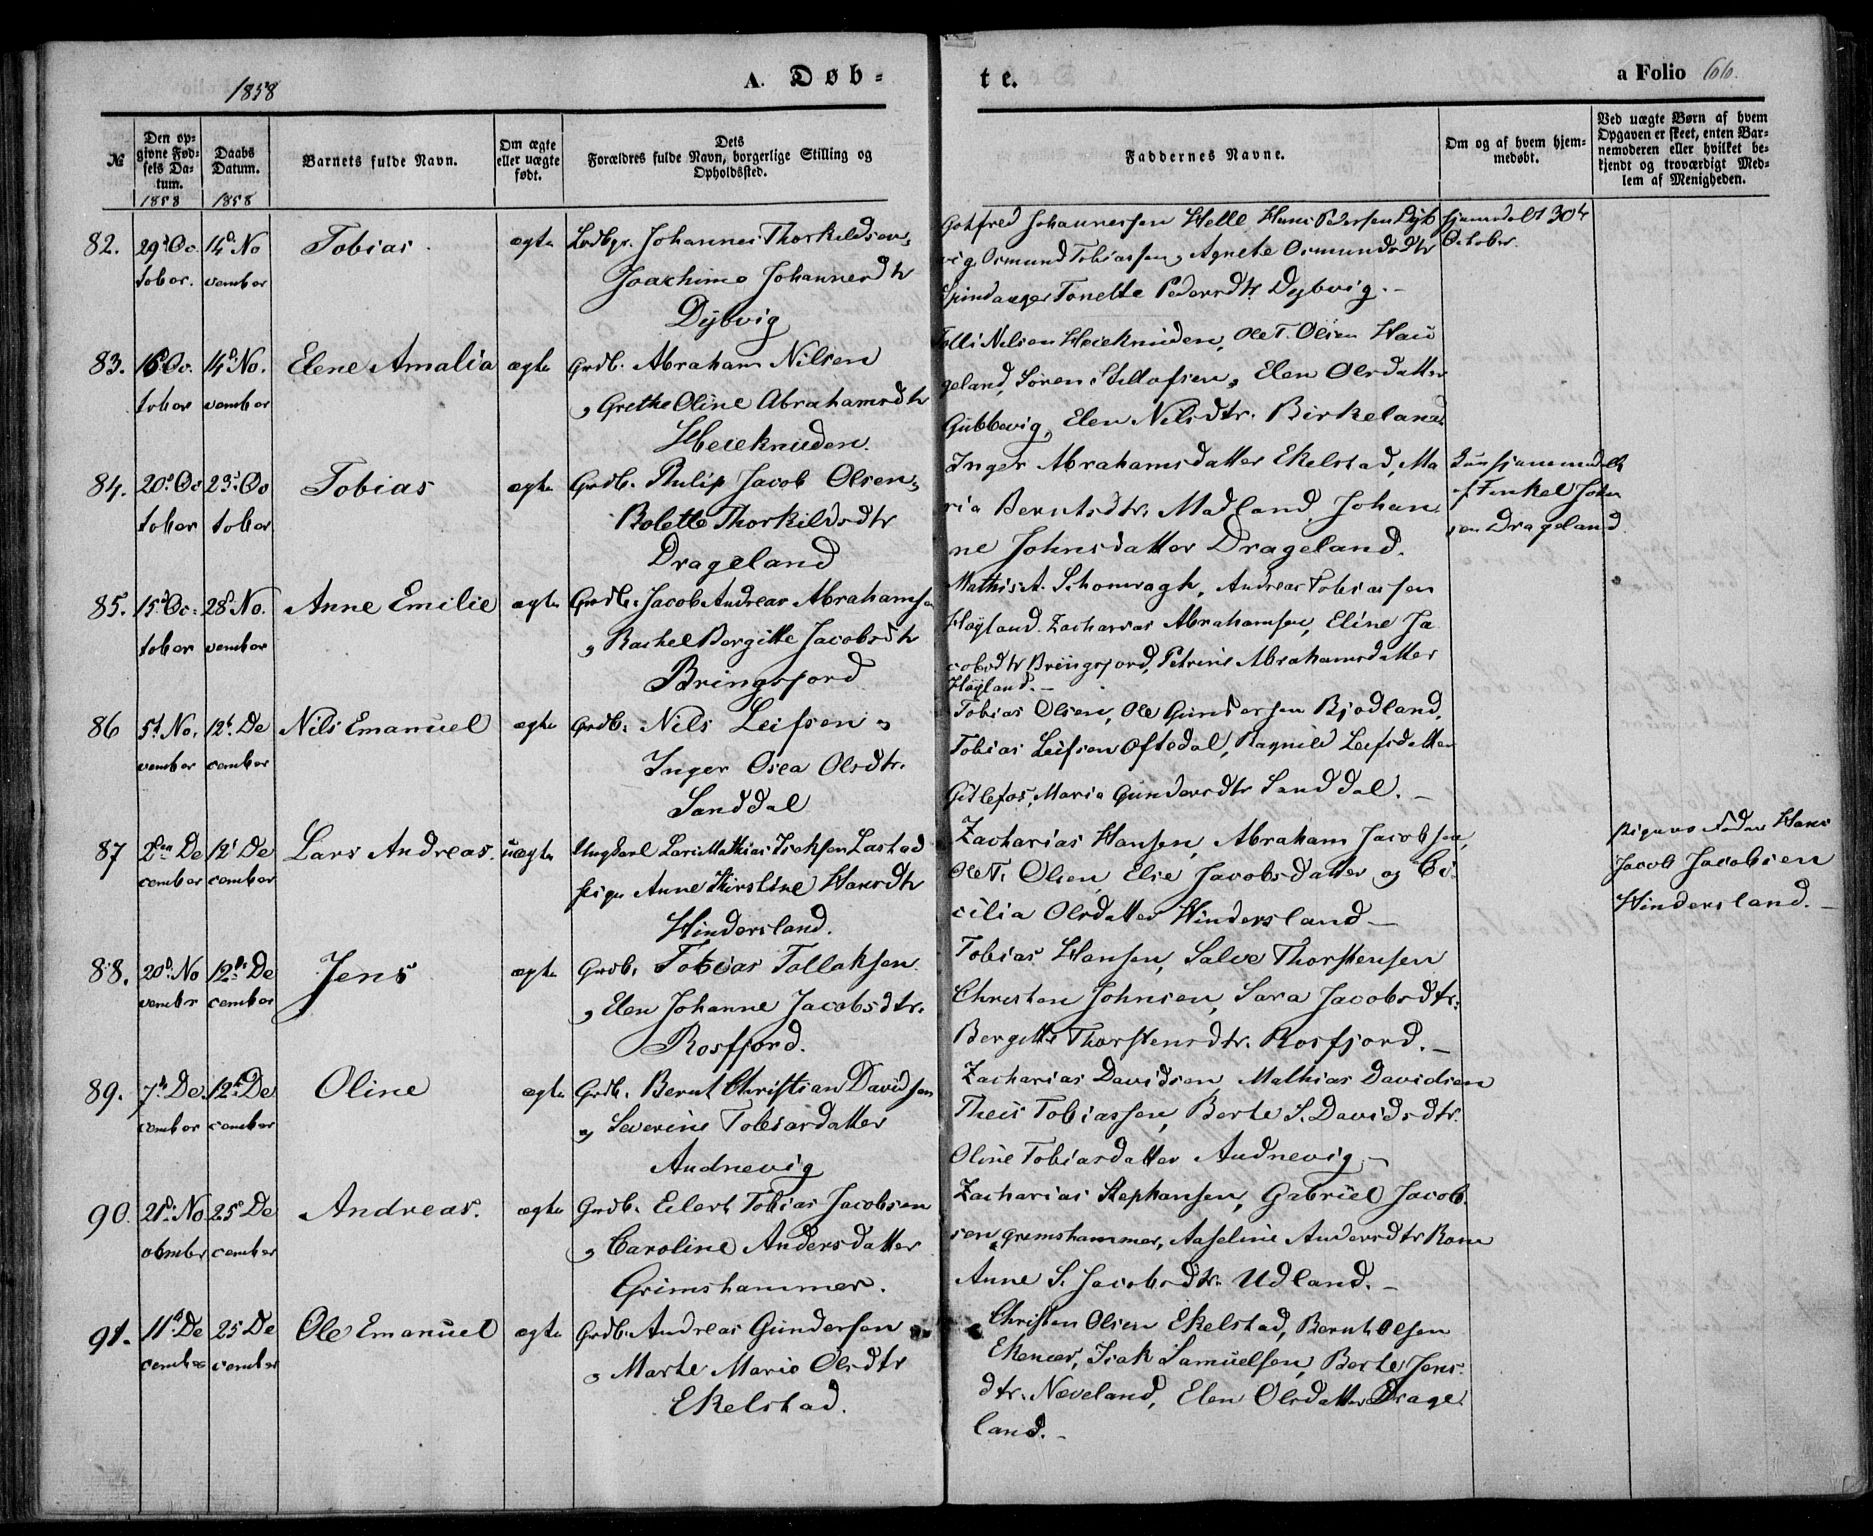 1858
A. Døb-
te.
a Folio 66.
№
Den op-
givne Fød-
sels Da-
tum.
1858
Daabs
Datum.
1858
Barnets fulde Navn.
Om ægte
eller uægte
født.
Dets
Forældres fulde Navn, borgerlige Stilling og
Opholdssted.
Faddernes Navne.
Om og af hvem hjem-
medøbt.
Ved uægte Børn af hvem
Opgaven er skeet, enten Bar-
nemoderen eller hvilket be-
kjendt og troværdigt Med-
lem af Menigheden.
82. 29d Oc 14d No Tobias. ægte Johannes Thorkildsen,
tober. vember Joachime Johannesdtr
Dybvig
Gotfred Johannessen Helle Hans Pedersen Dyb
vig Osmund Tobiassen, Agnete Osmundsdtr
Spindanger Tonette Pedersdtr Dybvig. -
hjemmedøbt 30te
October.
83. 16d Oc. 14d No. Elene Amalia ægte Grdb. Abraham Nilsen
tober vember , Grethe Oline Abrahamsdtr
Heieknuden.
Nilsen Heieknuden, Ole T. Olsen Hau
geland, Søren Stellofsen, Elen Olsdatter
Gubbevig, Elen Nilsdtr. Birkeland
84. 20d Oc 23d Oc Tobias ægte Grdb. Philip Jacob Olsen,
tober tober Bolette Thorkildsdtr
Drageland
Inger Abrahamsdatter Ekelstad, Ma
ria Berntsdtr. Madland, Johan
ne Johnsdatter Drageland.
hjemmedøbt
af Tenkel John
sen Drageland
85. 15d Oc. 28d No. Anne Emilie ægte Grdb. Jacob Andreas Abrahamsen
tober vember , Rachel Bergitte Jacobsdtr
Bringsfjord
Mathis A. Schomragh, Andreas Tobiassen
Høyland. Zacharias Abrahamsen, Eline Ja
cobsdtr Bringsfjord, Petrine Abrahamsdatter
Høyland. -
86 5d No. 12d De Nils Emanuel ægte Grdb. Nils Leifsen ,
vember cember Inger Osea Olsdtr.
Sanddal
Tobias Olsen, Ole Gundersen Bjodland,
Tobias Leifsen Oftedal, Ragnild Leifsdatter
Gitlefos, Maria Gundersdtr Sanddal. -
87 2den De 12d De Lars Andreas. uægte Ungkarl Lars Mathias Isaksen Lastad
cember cember Pige Anne Kirstine Hansdtr
Hindersland.
Zacharias Hansen, Abraham Jacobsen,
Ole T. Olsen, Else Jacobsdatter og Ci-
cilia Olsdatter Hindersland -
Pigens Fader Hans
Jacob Jacobsen
Hindersland. -
88. 20d No 12d De Jens ægte Grdb. Tobias Tollaksen
vembr cember , Elen Johanne Jacobsdtr.
Rosfjord.
Tobias Hansen, Salve Thorstensen
Christen Johnsen, Sara Jacobsdtr.
Bergitte Thorstensdtr. Rosfjord. -
89. 7d De. 12d De Oline ægte Grdb. Bernt Christian Davidsen
cember cember , Severine Tobiasdatter
Audnevig
Zacharias Davidsen, Mathias Davidsen
Theis Tobiassen, Berte S. Davidsdtr.
Oline Tobiasdatter Audnevig -
90. 21d No 25d De Andreas. ægte Grdb. Eilert Tobias Jacobsen
cember , Caroline Andersdatter
Grimshammer.
Zacharias Stephansen, Gabriel Jacob
sen Gremshammer, Aaseline Andersdtr Rom
Anne S. Jacobsdtr. Udland. -
91. 11d De 25 De Ole Emanuel ægte Grdb. Andreas Gundersen
cember cember , Marte Marie Olsdtr
Ekelstad.
Christen Olsen Ekelstad, Bernt Olsen
Isak Samuelsen, Berte Jens-
dtr. Næveland, Elen Olsdatter Drage
land. -